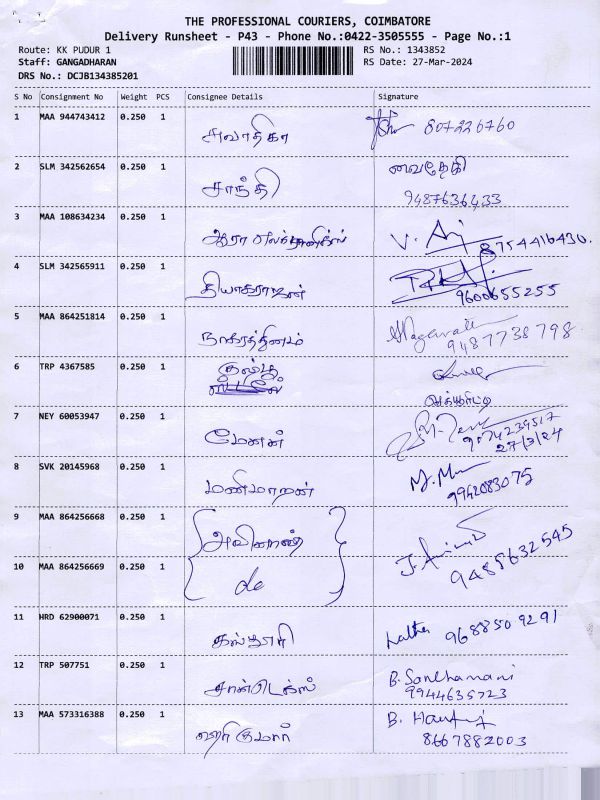 THE PROFESSIONAL COURIERS, COIMBATORE
Delivery Runsheet - P43 - Phone No.:0422-3505555 - Page No.:1
Route: KK PUDUR 1 RS No.: 1343852
Staff: GANGADHARAN RS Date: 27-Mar-2024
DRS No.: DCJB134385201
S No Consignment No Weight PCS Consignee Details Signature
1 MAA 944743412 0.250 1 அவாதிகா 807226760
2 SLM 342562654 0.250 1 சாந்தி வைதேகி
9487636433
3 MAA 108634234 0.250 1 V. 8754416430.
4 SLM 342565911 0.250 1 தியாகராஜன் 9600655255
5 MAA 864251814 0.250 1 நாகரத்தினம் 9487738798
6 TRP 4367585 0.250 1
7 NEY 60053947 0.250 1 மேனன் 9074239517
27/3/24
8 SVK 20145968 0.250 1 மணிமாறன் 9942083075
9 MAA 864256668 0.250 1 அவினாஷ்
10 MAA 864256669 0.250 1 do 9488632545
11 HRD 62900071 0.250 1 கஸ்தூரி Latha 9688509291
12 TRP 507751 0.250 1 B. Santhamani
9944635723
13 MAA 573316388 0.250 1 ஹரிகுமார் B.
8667882003